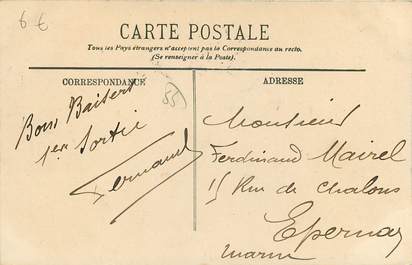 6 €
CARTE POSTALE
Tous les Pays étrangers n'acceptent pas la Correspondance au recto.
(Se renseigner à la Poste).
CORRESPONDANCE
ADRESSE
55
Bons Baisers
1er Sortie
Fernand
Monsieur
Ferdinand Mairel
15 Rue de Chalons
Epernay
Marne